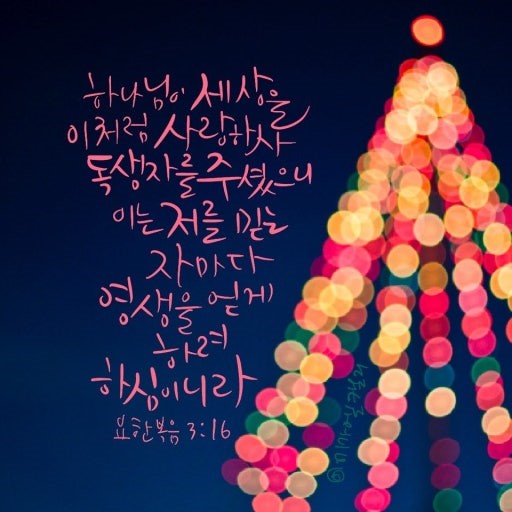 하나님이 세상을
이처럼 사랑하사
독생자를 주셨으니
이는 저를 믿는
자마다
영생을 얻게
하려
하심이니라
요한복음 3:16